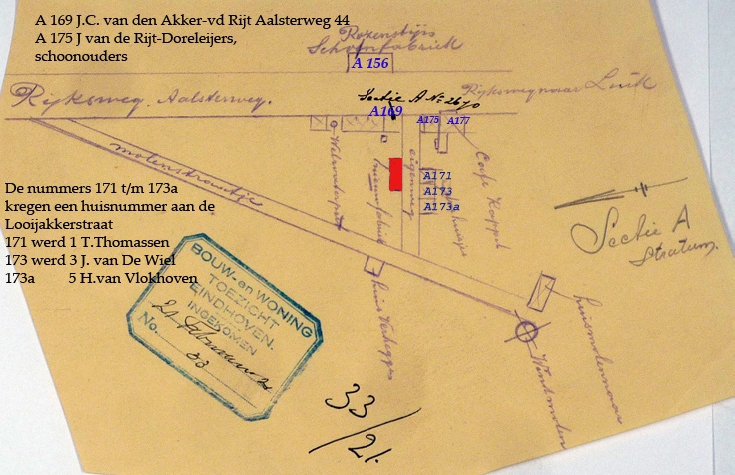 A 169 J.C. van den Akker-vd Rijt Aalsterweg 44
A 175 J van de Rijt-Doreleijers,
schoonouders
Rozenstijs
Schoenfabriek
A 156
Rijksweg Aalsterweg.
Rijksweg naar Luik
Sectie A No 2670
A169
A175
A177
molenstraatje
eigenweg
Cafe Kappel
A171
A173
A173a
huisjes
De nummers 171 t/m 173a
kregen een huisnummer aan de
Looijakkerstraat
171 werd 1 T.Thomassen
173 werd 3 J. van De Wiel
173a 5 H.van Vlokhoven
Sectie A
Stratum.
BOUW- en WONING
TOEZICHT
EINDHOVEN.
INGEKOMEN
No.
33
huis Verhegge
huismolenaar
Windmolen
33/21.